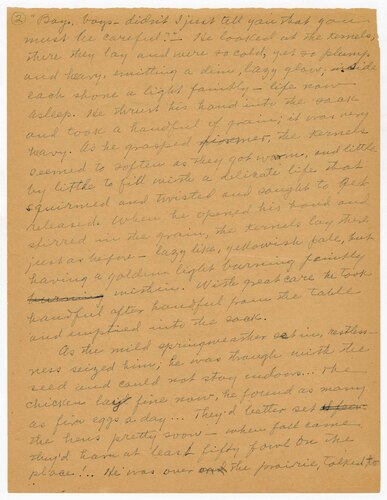 ② "Boy, boys – didn't I just tell you that you
must be careful." – He looked at the kernels;
there they lay and were so cold, yet so plump
and heavy, emitting a dim, lazy glow, inside
each shone a light faintly – life now
asleep. He thrust his hand into the sack
and took a handful of grain; it was very
heavy. As he grasped firmer, the kernels
seemed to soften as they got warm, and little
by little to fill with a delicate life that
squirmed and twisted and sought to get
released. When he opened his hand and
stirred in the grain, the kernels lay there
just as before – lazy like, yellowish pale, but
having a golden light burning faintly
burning within. With great care he took
handful after handful from the table
and emptied into the sack.
As the mild spring weather set in, restless-
ness seized him; he was through with the
seed and could not stay indoors... The
chicken lay fine now, he found as many
as five eggs a day... They'd better set
the hens pretty soon – when fall came
they'd have at least fifty fowl on the
place!.. He was over the prairie, talked to